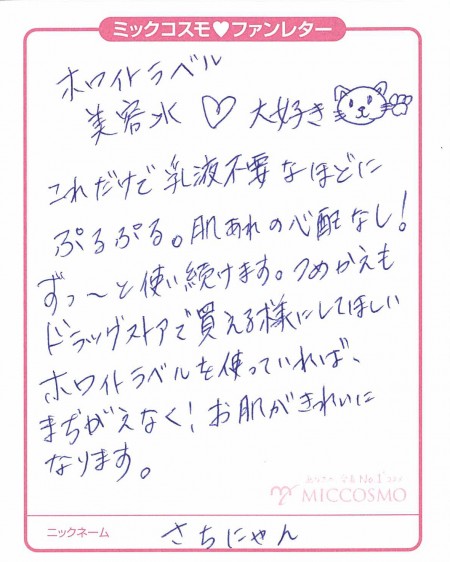 ミックコスモ♥ファンレター
ホワイトラベル
美容水 ♡ 大好き
これだけで乳液不要なほどに
ぷるぷる。肌あれの心配なし!
ずっ〜と使い続けます。つめかえも
ドラッグストアで買える様にしてほしい
ホワイトラベルを使っていれば、
まちがえなく!お肌がきれいに
なります。
No.1
MICCOSMO
ニックネーム さちにゃん